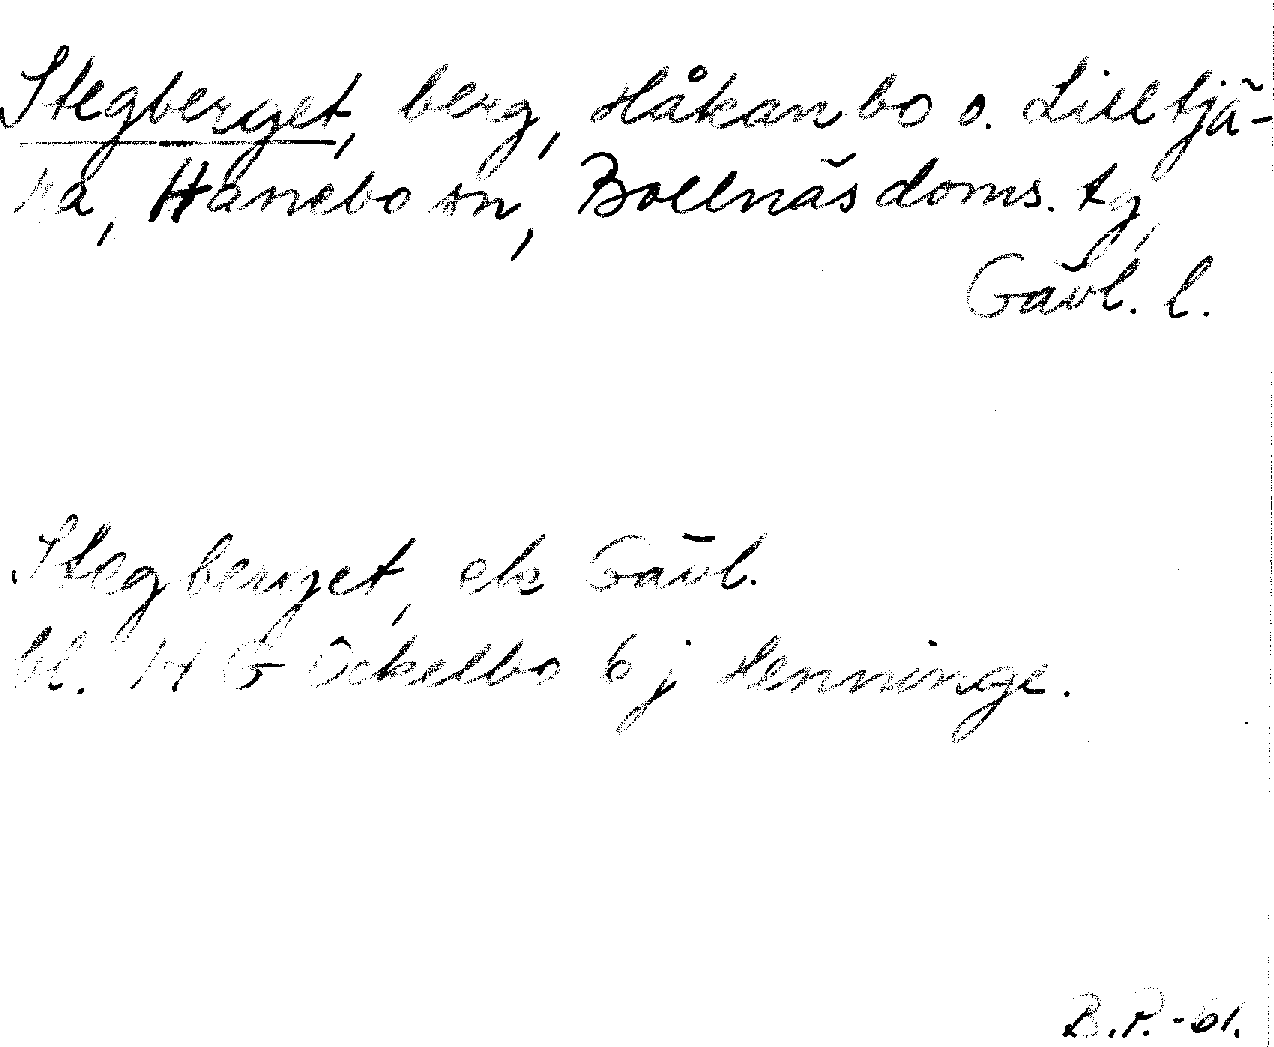 Stegberget, berg, Håkanbo o. Lilltjä-
ra, Hanebo sn, Bollnäs doms. tg,
Gävl. l.
Stegberget, ek Gävl.
bl. 14 G Ockelbo 6 j Henninge.
B.P.-61.